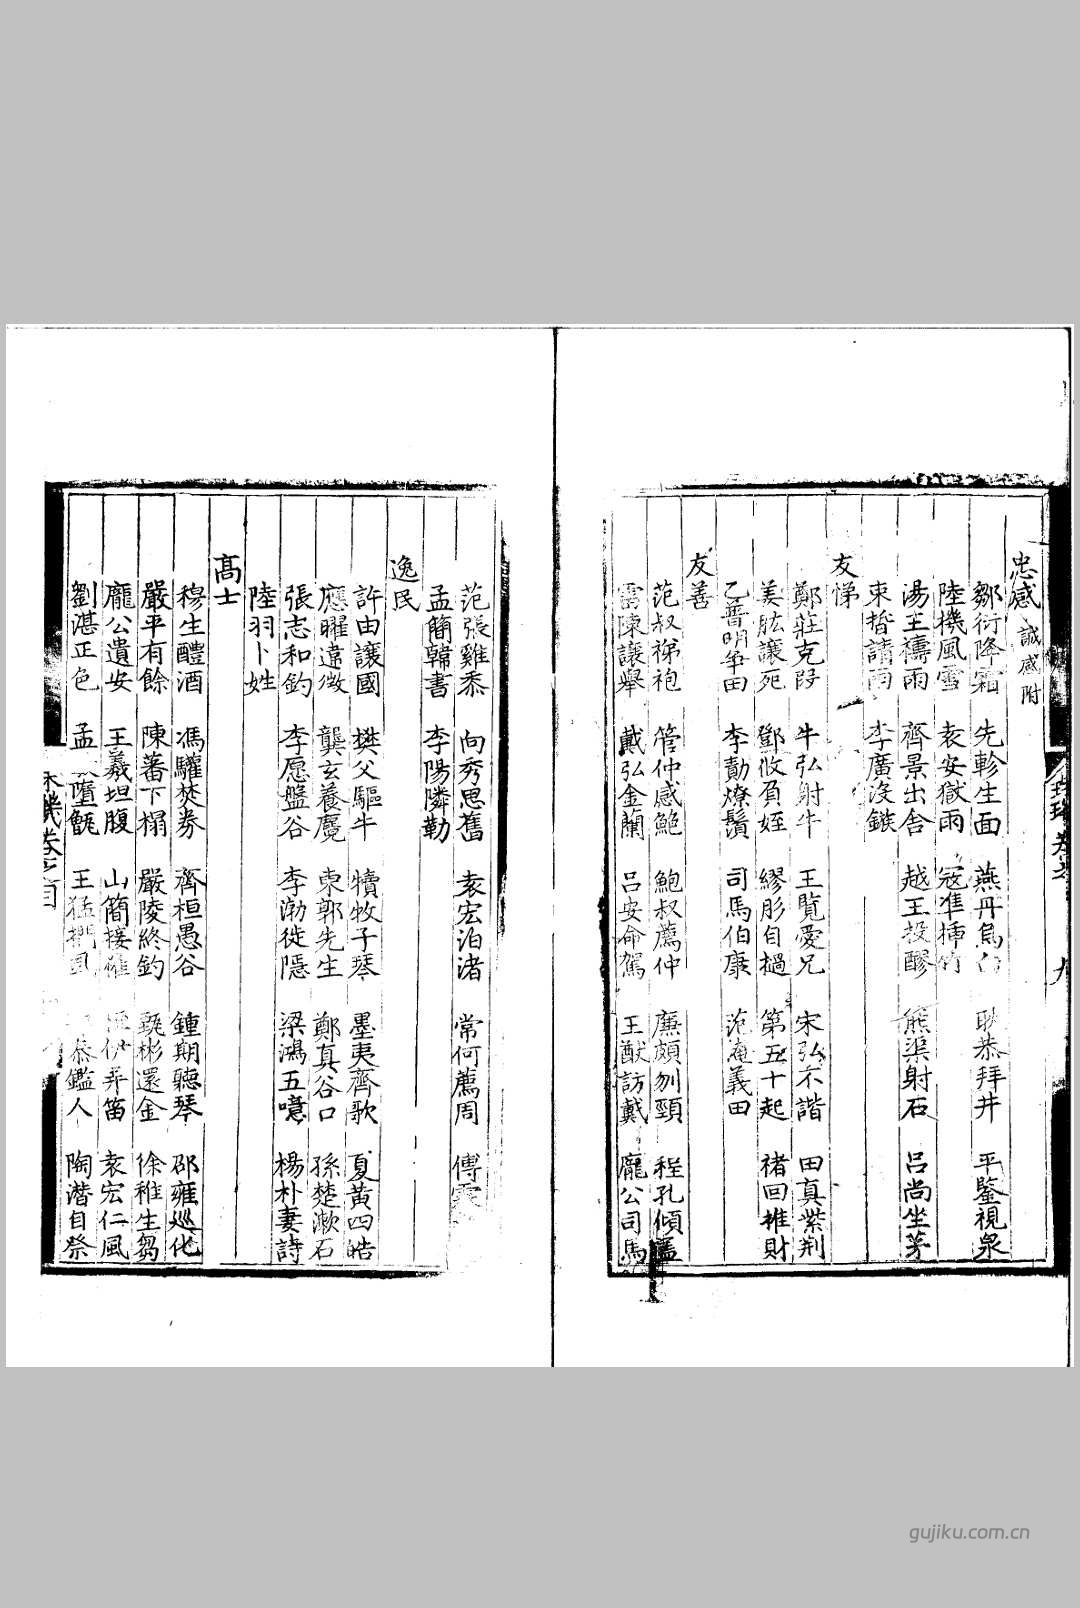 忠感 誠感附
鄒衍降霜 先軫生面 燕丹烏白 耿恭拜井 平鑒視泉
陸機風雪 袁安獄雨 冠準揷竹
湯王禱雨 齊景出舍 越王投醪 熊渠射石 呂尚坐茅
束晳請雨 李廣沒鏃
友悌
鄭莊克段 牛弘射牛 王覽愛兄 宋弘不諧 田真紫荆
姜肱讓死 鄧攸負姪 繆肜自撾 第五十起 禇回推財
乙普明爭田 李勣燎鬚 司馬伯康 范庵義田
友善
范叔祶袍 管仲感鮑 鮑叔薦仲 廉頗刎頸 程孔傾盖
雷陳讓舉 戴弘金蘭 呂安命駕 王猷訪戴 龐公司馬
九
范張雞黍 向秀思舊 袁宏泊渚 常何薦周 傅
孟簡韓書 李陽隣勒
逸民
許由讓國 樊父驅牛 犢牧子琴 墨夷齊歌 夏黄四皓
應曜遠徴 龔玄養魔 東郭先生 鄭真谷口 孫楚漱石
張志和釣 李愿盤谷 李渤徙隱 梁鴻五噫 楊朴妻詩
陸羽卜姓
高士
穆生醴酒 馮驩焚券 齊桓愚谷 鍾期聽琴 邵雍巡化
嚴平有餘 陳蕃下榻 嚴陵終釣 甄彬還金 徐稚生芻
龐公遺安 王羲坦腹 山簡接䍦 桓伊弄笛 袁宏仁風
劉湛正色 孟 墮甑 王猛捫虱 泰鑑人 陶潛自祭
gujiku.com.cn